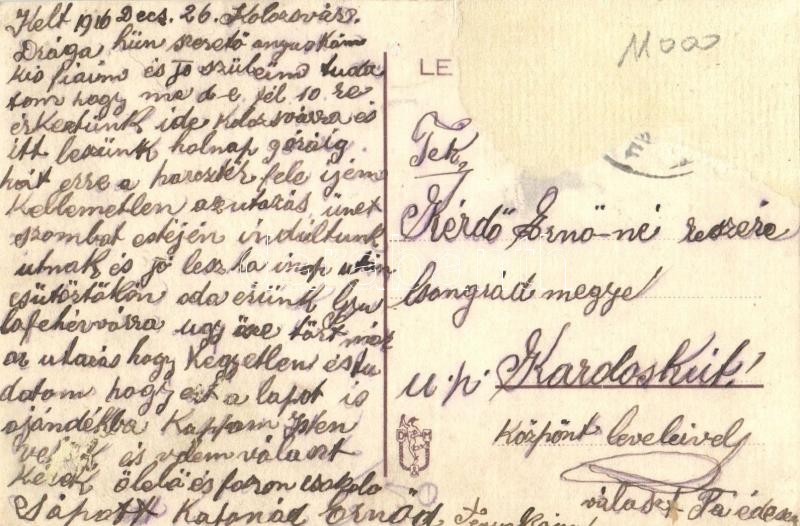 Kelt 1916 Decs. 26. Kolozsvár.
Drága hün szerető anyuskám
kis fiaim és jó szüleim tuda
tom hogy ma d-e fél 10 re
érkeztünk ide kolozsvárra és
itt leszünk holnap
hát erre a harcztér fele
Kellemetlen az utazás ünet
szombat estéjén indúltunk
utnak és jó lesz ha
csütörtökön oda erünk Gyu
lafehérvárra ugy össe tört már
az utazás hogy Kegyetlen és tu
datom hogy ezt a lapot is
ajándékba Kaptam Isten
vel és
Kérek ölelő és forón csokoló
Sápatt Katonád Ernőd
LE
M000
Tek.
Kérdő Ernő-né reszére
Csongrád megye
u. p. Kardoskút
Központ leveleivel
válasz Pá édesem